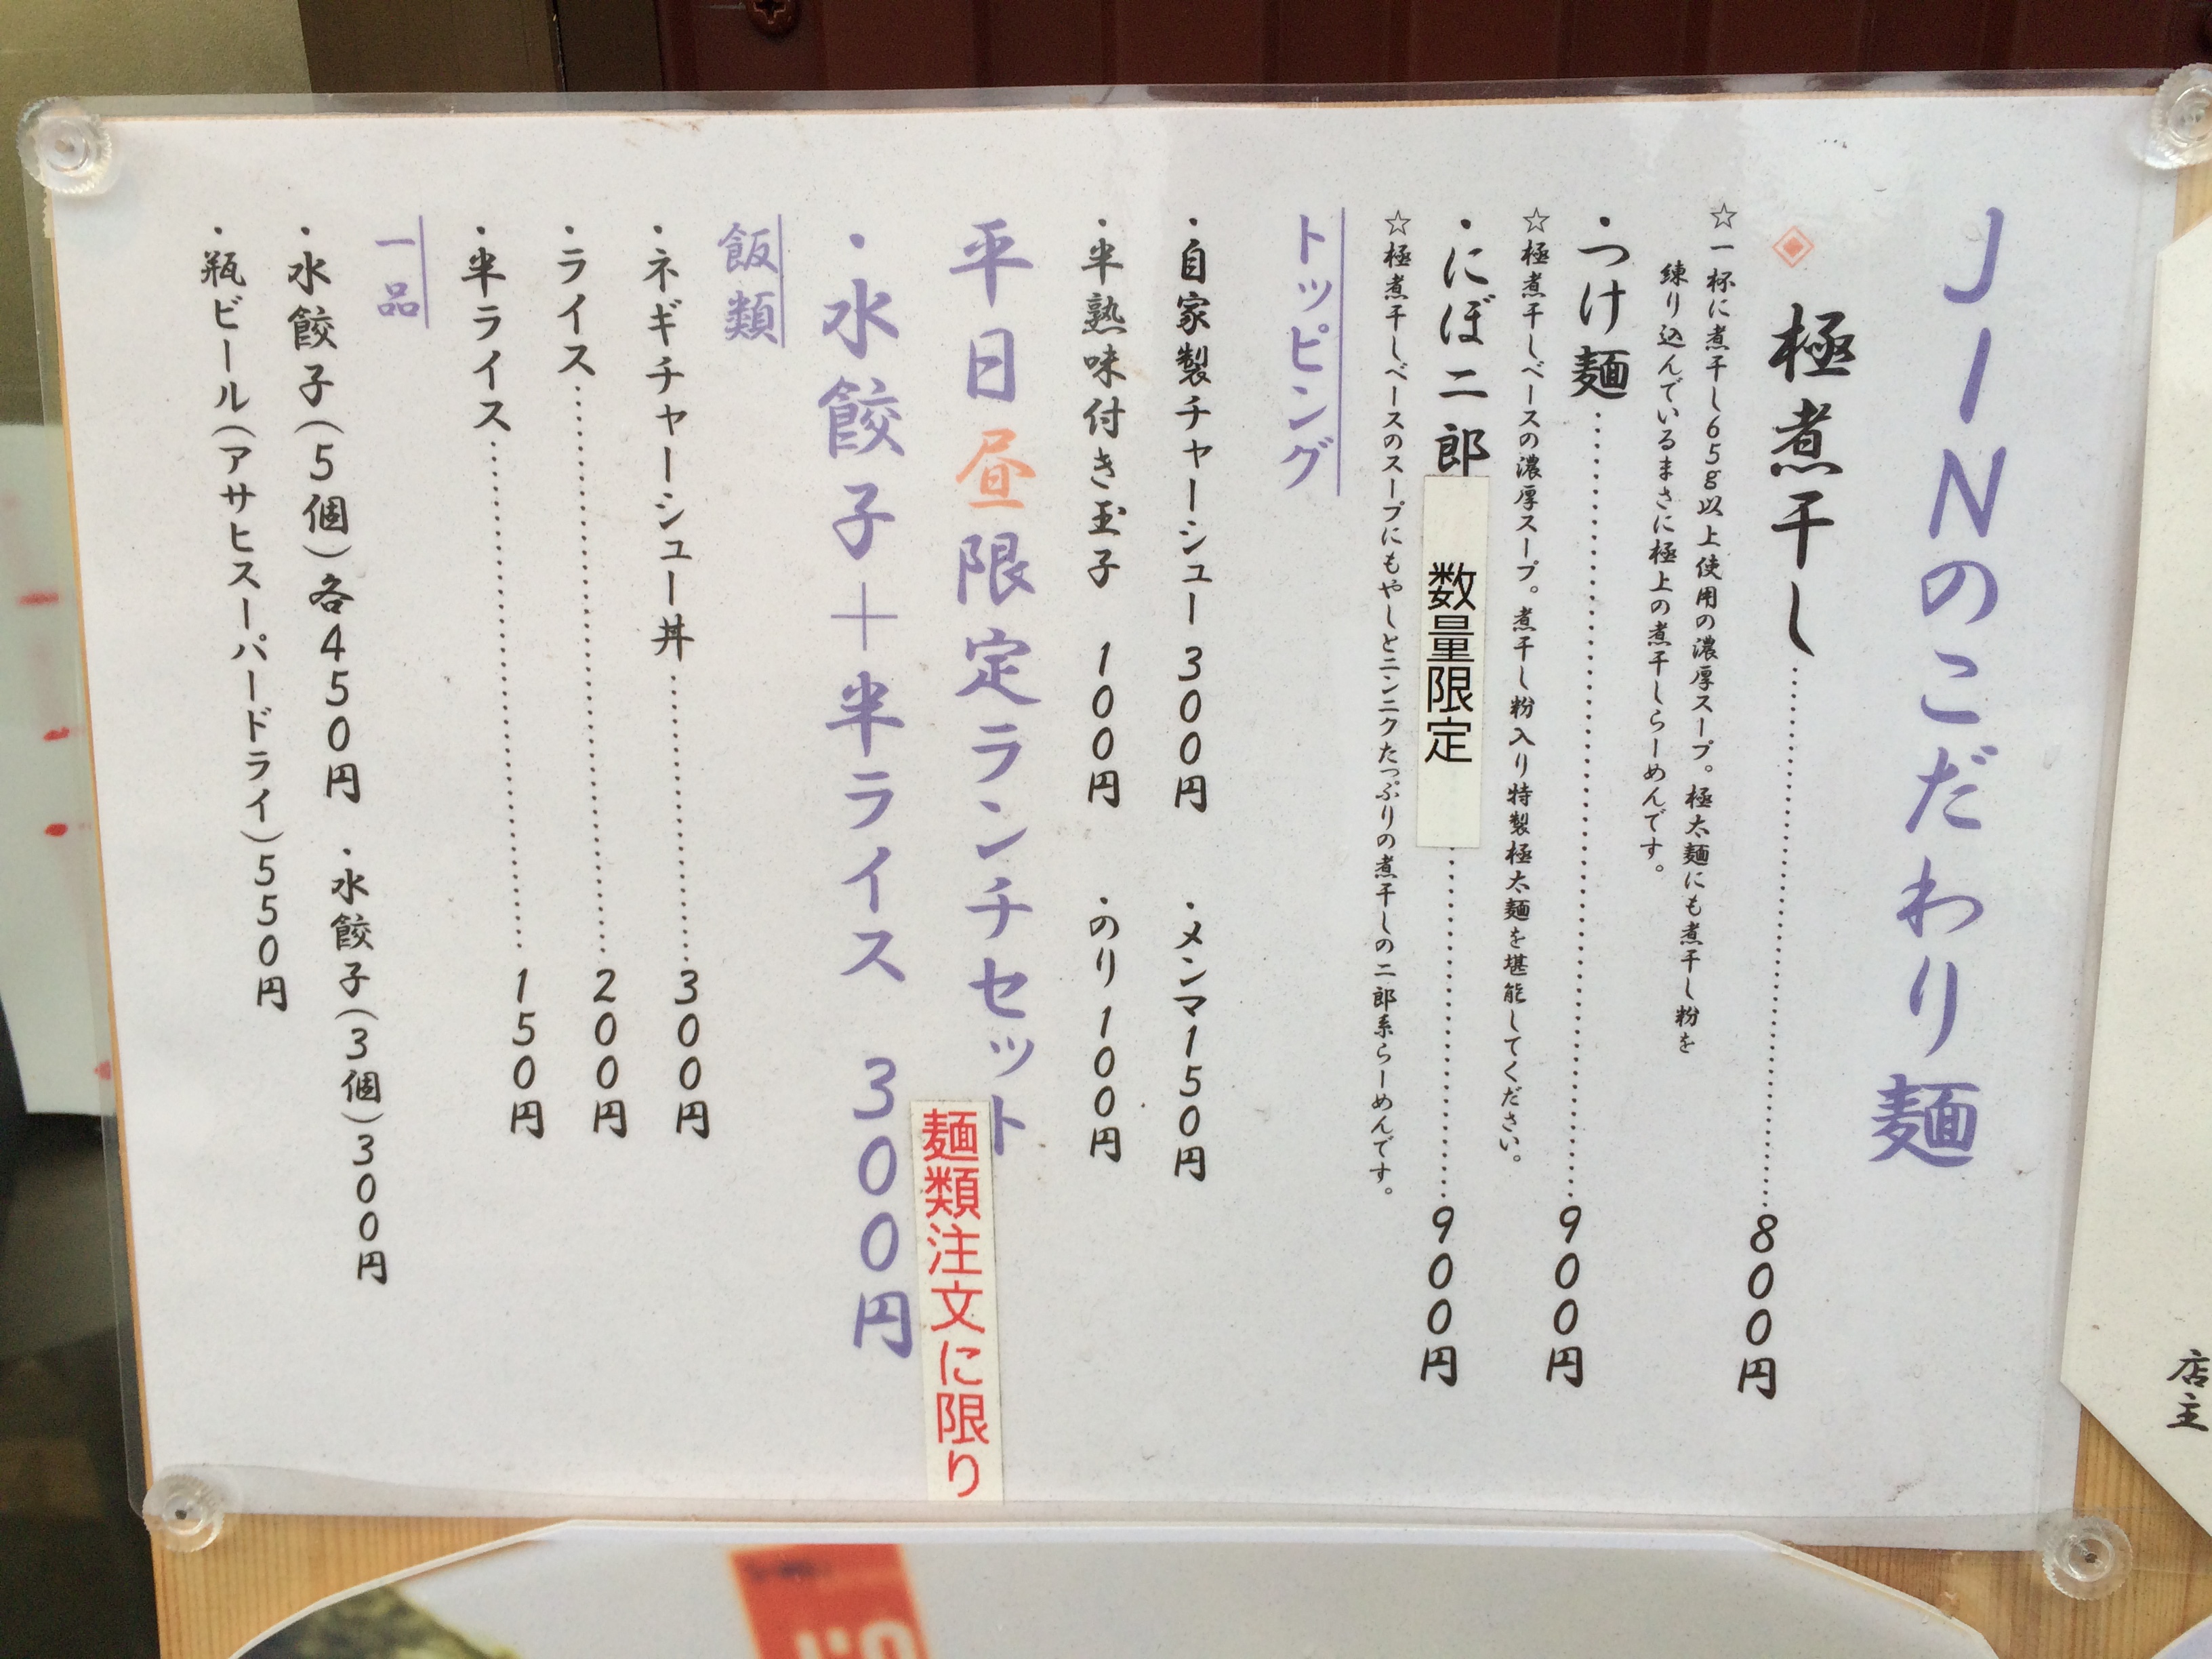 JINのこだわり麺
極煮干し……800円
☆一杯に煮干し65g以上使用の濃厚スープ。極太麺にも煮干し粉を
練り込んでいるまさに極上の煮干しらーめんです。
・つけ麺……900円
☆極煮干しベースの濃厚スープ。煮干し粉入り特製極太麺を堪能してください。
・にぼ二郎 数量限定……900円
☆極煮干しベースのスープにもやしとニンニクたっぷりの煮干しの二郎系らーめんです。
トッピング
・自家製チャーシュー300円 ・メンマ150円
・半熟味付き玉子 100円 ・のり100円
平日昼限定ランチセット
麺類注文に限り
・水餃子+半ライス 300円
飯類
・ネギチャーシュー丼……300円
・ライス……200円
・半ライス……150円
一品
・水餃子(5個)各450円 ・水餃子(3個)300円
・瓶ビール(アサヒスーパードライ)550円
店主